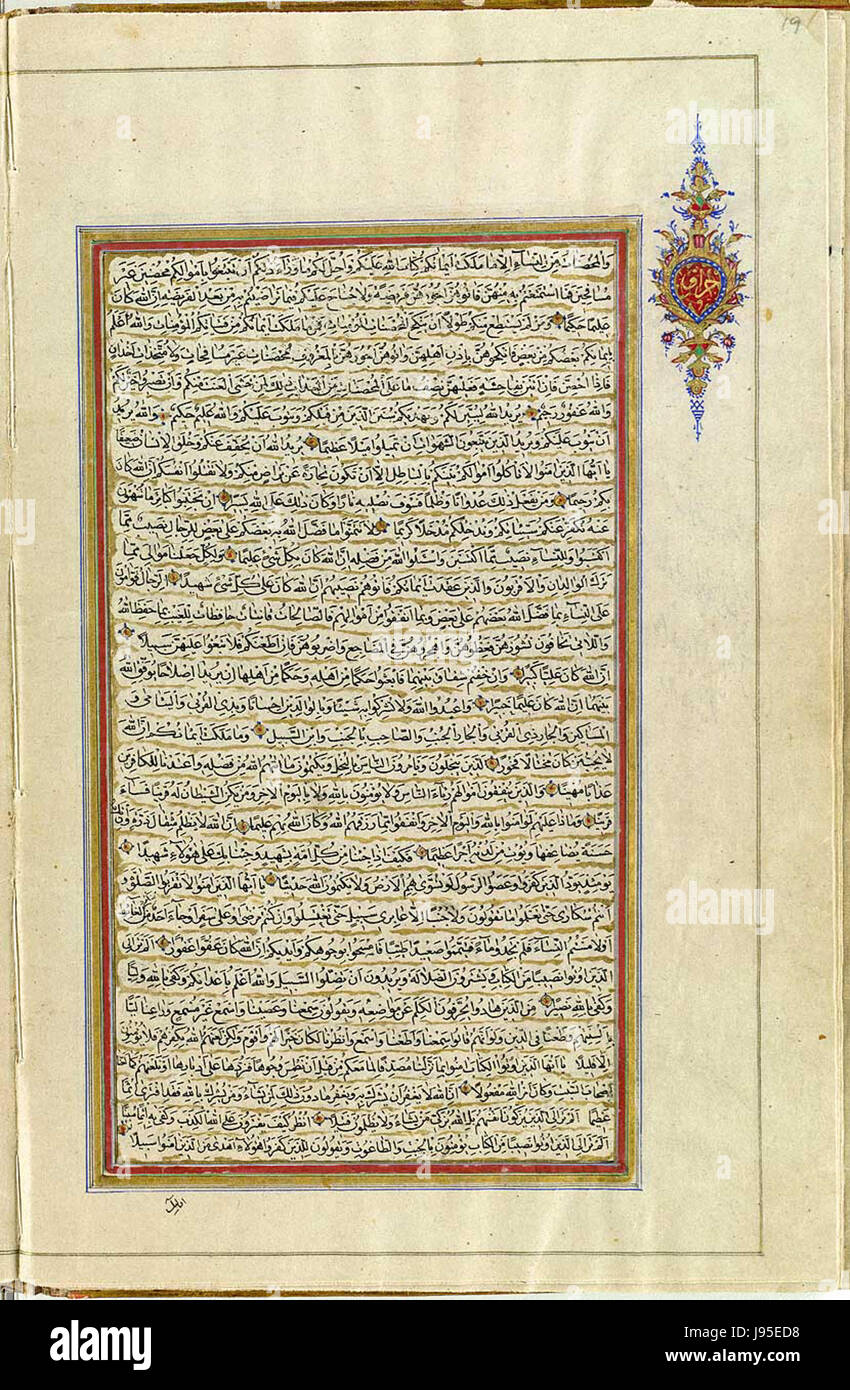 والمحصنات من النساء الا ما ملكت ايمانكم كتاب الله عليكم واحل لكم ما وراء ذلكم ان تبتغوا باموالكم محصنين غير
مسافحين فما استمتعتم به منهن فاتوهن اجورهن فريضة ولا جناح عليكم فيما تراضيتم به من بعد الفريضة ان الله كان
عليما حكيما ومن لم يستطع منكم طولا ان ينكح المحصنات المؤمنات فمن ما ملكت ايمانكم من فتياتكم المؤمنات والله اعلم
بايمانكم بعضكم من بعض فانكحوهن باذن اهلهن واتوهن اجورهن بالمعروف محصنات غير مسافحات ولا متخذات اخدان
فاذا احصن فان اتين بفاحشة فعليهن نصف ما على المحصنات من العذاب ذلك لمن خشي العنت منكم وان تصبروا خير لكم
والله غفور رحيم يريد الله ليبين لكم ويهديكم سنن الذين من قبلكم ويتوب عليكم والله عليم حكيم والله يريد
ان يتوب عليكم ويريد الذين يتبعون الشهوات ان تميلوا ميلا عظيما يريد الله ان يخفف عنكم وخلق الانسان ضعيفا
يا ايها الذين امنوا لا تاكلوا اموالكم بينكم بالباطل الا ان تكون تجارة عن تراض منكم ولا تقتلوا انفسكم ان الله كان
بكم رحيما ومن يفعل ذلك عدوانا وظلما فسوف نصليه نارا وكان ذلك على الله يسيرا ان تجتنبوا كبائر ما تنهون
عنه نكفر عنكم سيئاتكم وندخلكم مدخلا كريما ولا تتمنوا ما فضل الله به بعضكم على بعض للرجال نصيب مما
اكتسبوا وللنساء نصيب مما اكتسبن واسئلوا الله من فضله ان الله كان بكل شيء عليما ولكل جعلنا موالي مما
ترك الوالدان والاقربون والذين عقدت ايمانكم فاتوهم نصيبهم ان الله كان على كل شيء شهيدا الرجال قوامون
على النساء بما فضل الله بعضهم على بعض وبما انفقوا من اموالهم فالصالحات قانتات حافظات للغيب بما حفظ الله
واللاتي تخافون نشوزهن فعظوهن واهجروهن في المضاجع واضربوهن فان اطعنكم فلا تبغوا عليهن سبيلا
ان الله كان عليا كبيرا وان خفتم شقاق بينهما فابعثوا حكما من اهله وحكما من اهلها ان يريدا اصلاحا يوفق الله
بينهما ان الله كان عليما خبيرا واعبدوا الله ولا تشركوا به شيئا وبالوالدين احسانا وبذي القربى واليتامى و
المساكين والجار ذي القربى والجار الجنب والصاحب بالجنب وابن السبيل وما ملكت ايمانكم ان الله
لا يحب من كان مختالا فخورا الذين يبخلون ويامرون الناس بالبخل ويكتمون ما اتيهم الله من فضله واعتدنا للكافرين
عذابا مهينا والذين ينفقون اموالهم رئاء الناس ولا يؤمنون بالله ولا باليوم الاخر ومن يكن الشيطان له قرينا فساء
قرينا وماذا عليهم لو امنوا بالله واليوم الاخر وانفقوا مما رزقهم الله وكان الله بهم عليما ان الله لا يظلم مثقال ذرة وان تك
حسنة يضاعفها ويؤت من لدنه اجرا عظيما فكيف اذا جئنا من كل امة بشهيد وجئنا بك على هؤلاء شهيدا
يومئذ يود الذين كفروا وعصوا الرسول لو تسوى بهم الارض ولا يكتمون الله حديثا يا ايها الذين امنوا لا تقربوا الصلوة و
انتم سكارى حتى تعلموا ما تقولون ولا جنبا الا عابري سبيل حتى تغتسلوا وان كنتم مرضى او على سفر او جاء احد منكم من الغائط
او لامستم النساء فلم تجدوا ماء فتيمموا صعيدا طيبا فامسحوا بوجوهكم وايديكم ان الله كان عفوا غفورا الم تر الى
الذين اوتوا نصيبا من الكتاب يشترون الضلالة ويريدون ان تضلوا السبيل والله اعلم باعدائكم وكفى بالله وليا
وكفى بالله نصيرا من الذين هادوا يحرفون الكلم عن مواضعه ويقولون سمعنا وعصينا واسمع غير مسمع وراعنا ليا
بالسنتهم وطعنا في الدين ولو انهم قالوا سمعنا واطعنا واسمع وانظرنا لكان خيرا لهم واقوم ولكن لعنهم الله بكفرهم فلا يؤمنون
الا قليلا يا ايها الذين اوتوا الكتاب امنوا بما نزلنا مصدقا لما معكم من قبل ان نطمس وجوها فنردها على ادبارها او نلعنهم كما لعنا
اصحاب السبت وكان امر الله مفعولا ان الله لا يغفر ان يشرك به ويغفر ما دون ذلك لمن يشاء ومن يشرك بالله فقد افترى اثما
عظيما الم تر الى الذين يزكون انفسهم بل الله يزكي من يشاء ولا يظلمون فتيلا انظر كيف يفترون على الله الكذب وكفى به اثما مبينا
الم تر الى الذين اوتوا نصيبا من الكتاب يؤمنون بالجبت والطاغوت ويقولون للذين كفروا هؤلاء اهدى من الذين امنوا سبيلا
alamy
Image ID: J95ED8
www.alamy.com